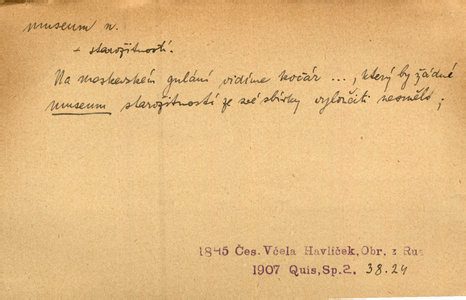 museum n.
+ starožitností.
Na moskevském gulání vidíme kočár ..., který by žádné
museum starožitností ze své sbírky vyloučiti nesmělo;
1845 Čes. Včela Havlíček, Obr. z Rus
1907 Quis, Sp. 2. 38.24